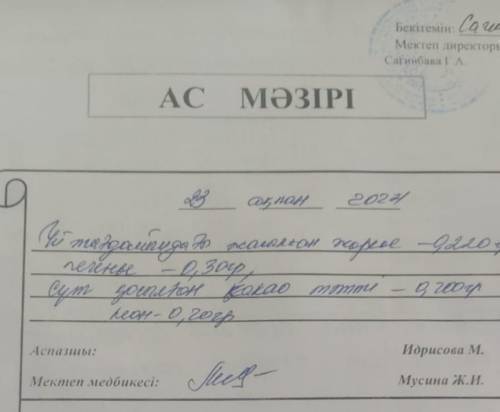 Бекітемін: Саги
Мектеп директоры
Сагинбава Г.А.
АС МӘЗІРІ
23 ақпан 2024
Үй жағдайындағы жасалған көже - 0,220
печенье - 0,30гр,
Сүт қосылған какао тәтті - 0,200гр
нан - 0,20гр
Аспазшы: Идрисова М.
Мектеп медбикесі: Мусина Ж.И.